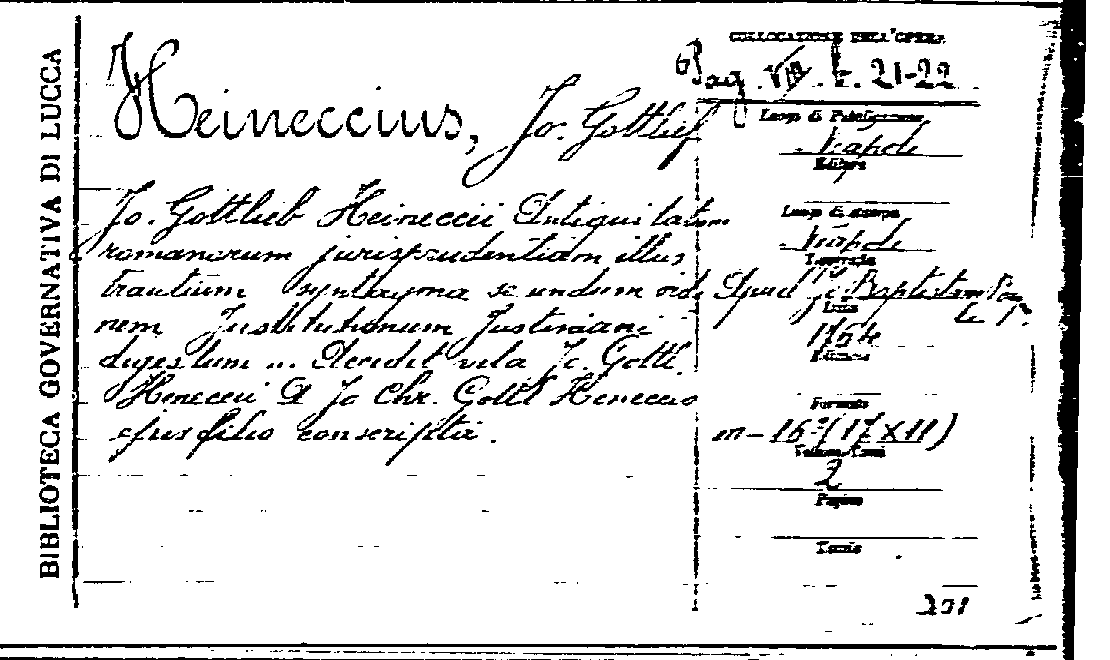 BIBLIOTECA GOVERNATIVA DI LUCCA
Heineccius, Jo. Gottlieb
Jo. Gottlieb Heineccii Antiquitatum
romanorum jurisprudentiam illus
trantium syntagma secundum ordi
nem Institutionum Justiniani
digestum ... Accedit vita Jo. Gottl.
Heineccii a Jo Chr. Gottl Heineccio
ejus filio conscripta.
COLLOCAZIONE DELL'OPERA
Pag. VIII. b. 21-22
Luogo di Pubblicazione
Napoli
Editore
Luogo di stampa
Napoli
Apud Jo Baptistam
Data
1764
Edizione
Formato
m-16º (17 X 11)
Volume
2
Pagine
Tavole